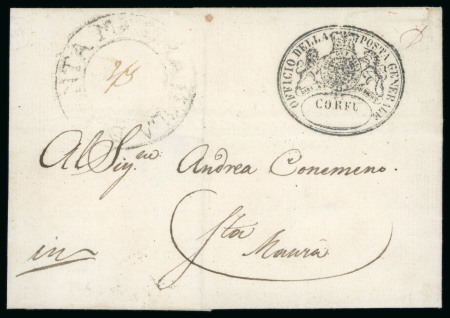 SANTA MAURA
OFFICIO DELLA POSTA GENERALE
CORFU
Al Sigre Andrea Conemeno.
Sta
Maura
in